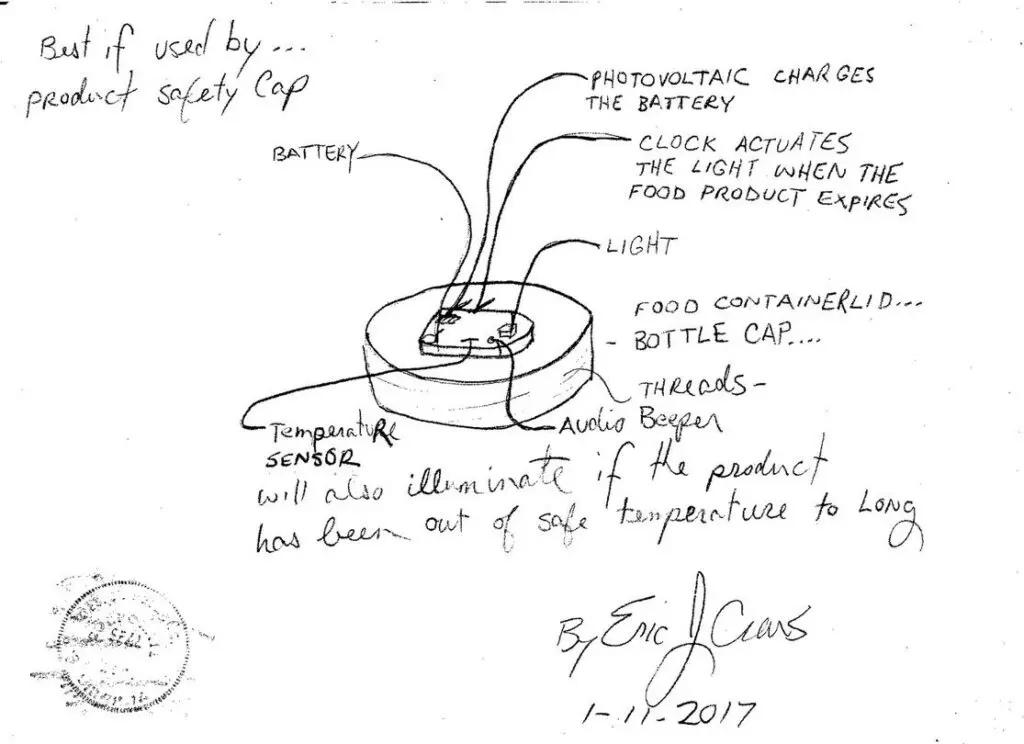 Best if used by...
product safety Cap
PHOTOVOLTAIC CHARGES
THE BATTERY
BATTERY
CLOCK ACTUATES
THE LIGHT WHEN THE
FOOD PRODUCT EXPIRES
LIGHT
FOOD CONTAINERLID...
- BOTTLE CAP....
THREADS-
Audio Beeper
Temperature
SENSOR
will also illuminate if the product
has been out of safe temperature to LONG
By Eric J
1-11-2017